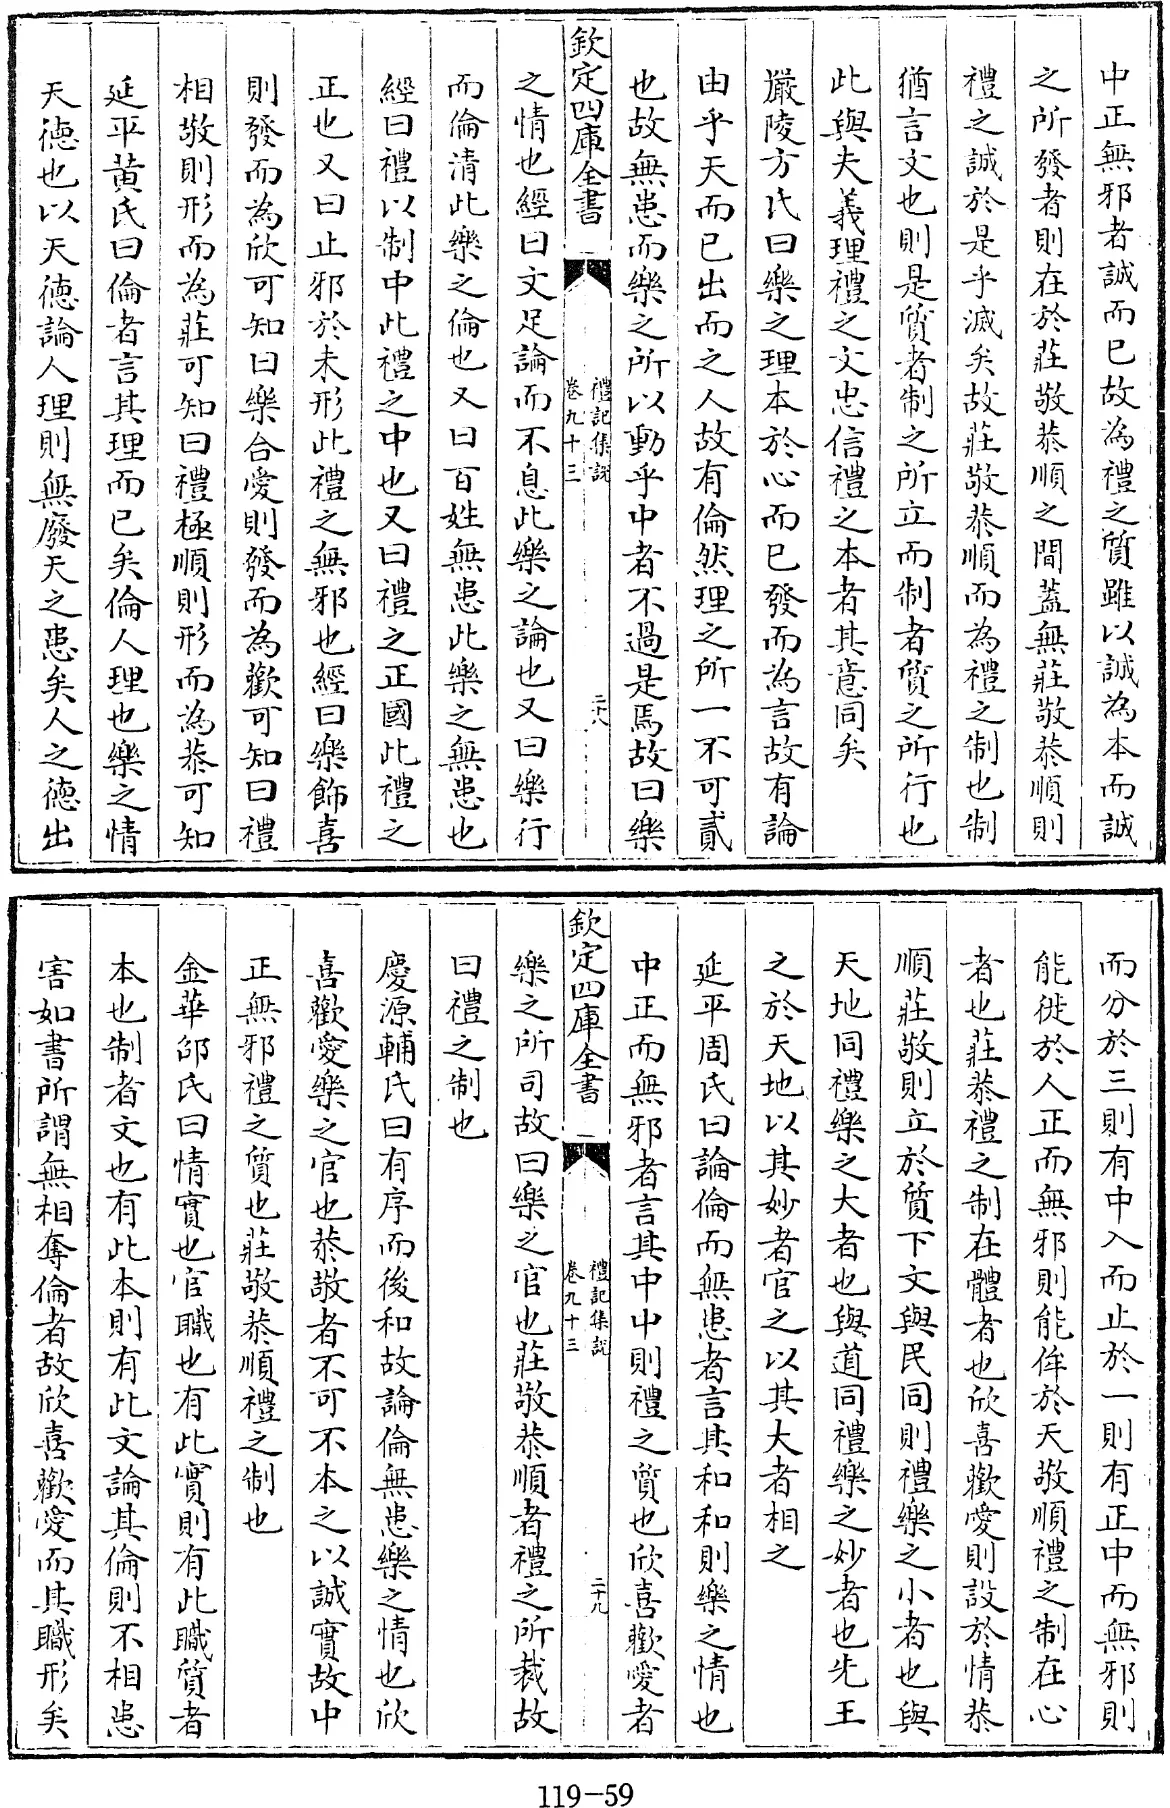 中正無邪者誠而已故為禮之質雖以誠為本而誠
之所發者則在於莊敬恭順之間蓋無莊敬恭順則
禮之誠於是乎滅矣故莊敬恭順而為禮之制也制
猶言文也則是質者制之所立而制者質之所行也
此與夫義理禮之文忠信禮之本者其意同矣
嚴陵方氏曰樂之理本於心而已發而為言故有論
由乎天而已出而之人故有倫然理之所一不可貳
也故無患而樂之所以動乎中者不過是焉故曰樂
欽定四庫全書
禮記集說
卷九十三
二十八
之情也經曰文足論而不息此樂之論也又曰樂行
而倫清此樂之倫也又曰百姓無患此樂之無患也
經曰禮以制中此禮之中也又曰禮之正國此禮之
正也又曰止邪於未形此禮之無邪也經曰樂飾喜
則發而為欣可知曰樂合愛則發而為歡可知曰禮
相敬則形而為莊可知曰禮極順則形而為恭可知
延平黃氏曰倫者言其理而已矣倫人理也樂之情
天德也以天德論人理則無廢天之患矣人之德出
而分於三則有中入而止於一則有正中而無邪則
能徙於人正而無邪則能侔於天敬順禮之制在心
者也莊恭禮之制在體者也欣喜歡愛則設於情恭
順莊敬則立於質下文與民同則禮樂之小者也與
天地同禮樂之大者也與道同禮樂之妙者也先王
之於天地以其妙者官之以其大者相之
延平周氏曰論倫而無患者言其和和則樂之情也
中正而無邪者言其中中則禮之質也欣喜歡愛者
欽定四庫全書
禮記集說
卷九十三
二十九
樂之所司故曰樂之官也莊敬恭順者禮之所裁故
曰禮之制也
慶源輔氏曰有序而後和故論倫無患樂之情也欣
喜歡愛樂之官也恭敬者不可不本之以誠實故中
正無邪禮之質也莊敬恭順禮之制也
金華邵氏曰情實也官職也有此實則有此職質者
本也制者文也有此本則有此文論其倫則不相患
害如書所謂無相奪倫者故欣喜歡愛而其職形矣
119-59